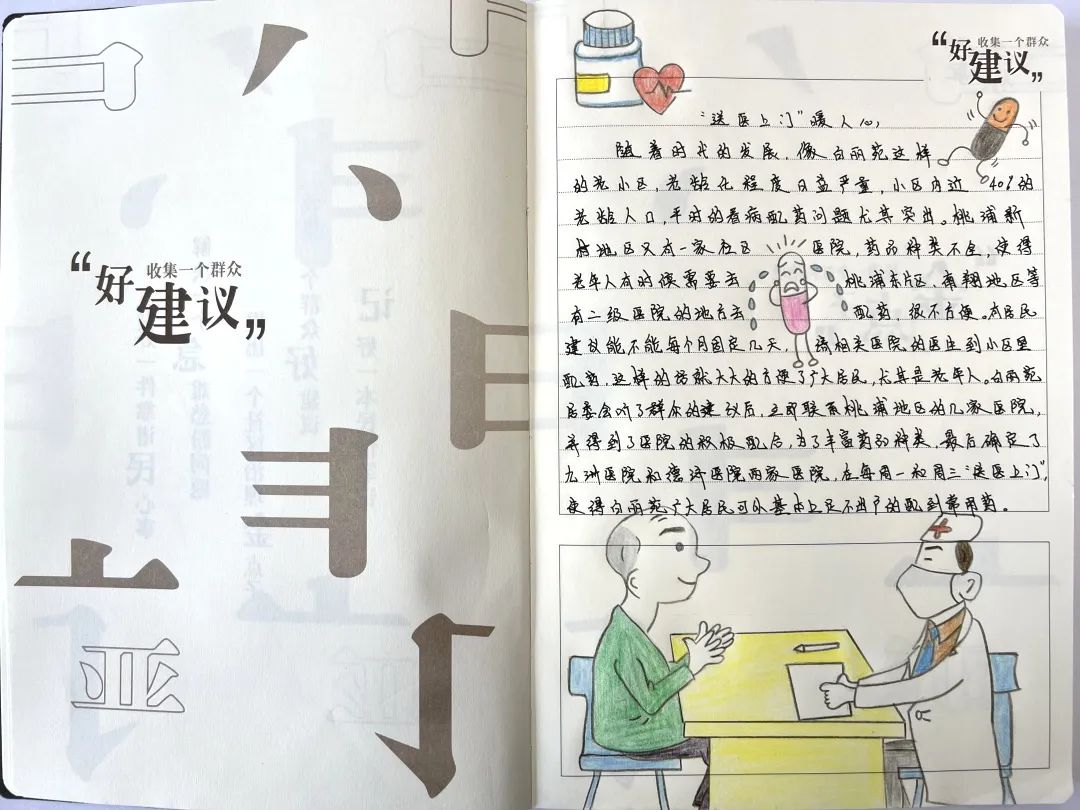 “好建议”
收集一个群众
亚
收集一个群众
“好建议”
“送医上门”暖人心
随着时代的发展，像白丽苑这样
的老小区，老龄化程度日益严重，小区内近40%的
老龄人口，平时的看病配药问题尤其突出。桃浦新
村地区又有一家社区医院，药品种类不全，使得
老年人有时候需要去桃浦东片区、南翔地区等
有二级医院的地方去配药，很不方便。有居民
建议能不能每个月固定几天，请相关医院的医生到小区里
配药，这样的话就大大的方便了广大居民，尤其是老年人。白丽苑
居委会听了群众的建议后，立即联系桃浦地区的几家医院，
并得到了医院的积极配合，为了丰富药品种类，最后确定了
九洲医院和德济医院两家医院，在每周一和周三“送医上门”，
使得白丽苑广大居民可以基本上足不出户的配到常用药。